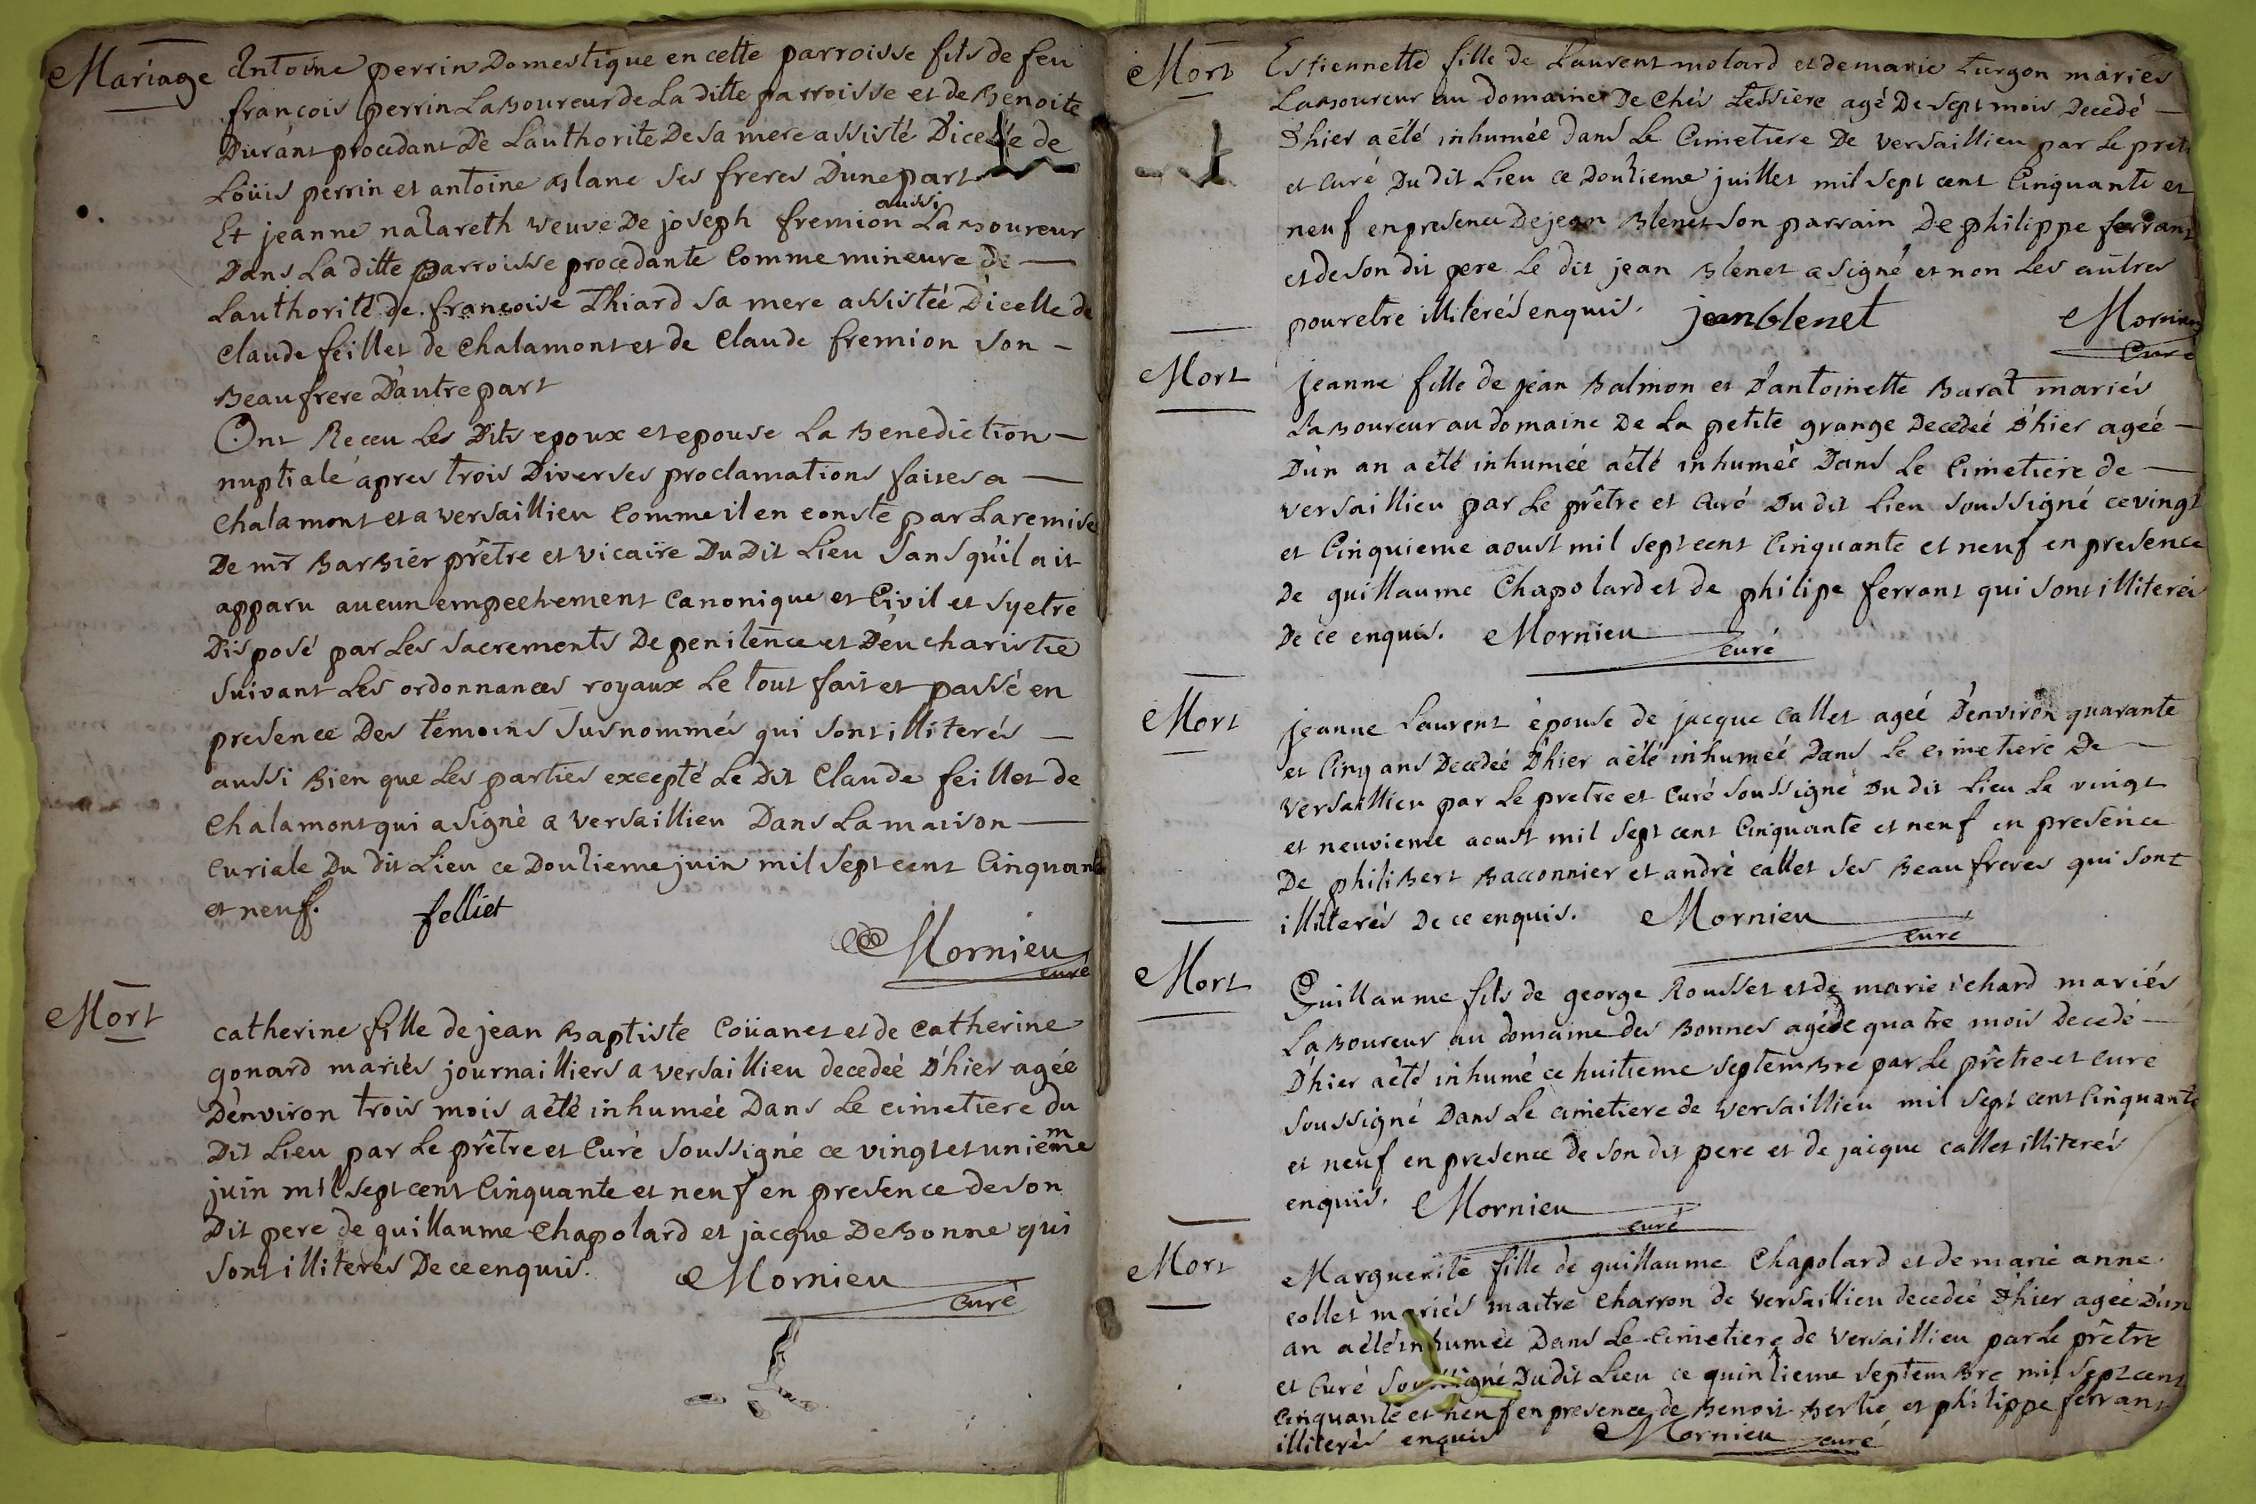 Mariage
Antoine perrin Domestique en cette parroisse fils de feu
francois perrin Laboureur de La ditte parroisse et de Benoite
Durant procedant De Lauthorité De sa mere assisté Dicelle de
Loüis perrin et antoine aslane ses freres Dune part
Et jeanne nazareth veuve De joseph fremion aussi Laboureur
Dans La ditte parroisse procedante Comme mineure de
Lauthorité de francoise Thiard sa mere assistée Dicelle de
Claude feillet de Chalamont et de Claude fremion son
Beaufrere Dautre part
Ont Receu Les Dits epoux et epouse La Benediction
nuptiale apres trois Diverses proclamations faites a
Chalamont et a versaillieu Comme il en conste par La remise
De mr Barbier prêtre et vicaire Du Dit Lieu Sans qu'il ait
apparu aucun empechement Canonique et Civil et sy etre
Disposé par Les sacrements De penitence et D'eucharistie
Suivant Les ordonnances royaux Le tout fait et passé en
presence Des temoins susnommés qui sont illiterés
aussi Bien que Les parties excepté Le Dit Claude feillet de
Chalamont qui a signé a versaillieu Dans La maison
Curiale Du Dit Lieu ce Douzieme juin mil sept cent Cinquante
et neuf. felliet
Mornieu
curé
Mort
catherine fille de jean Baptiste Coüanet et de Catherine
gonard mariés journailliers a versaillieu decedeé D'hier agée
D'environ trois mois a été inhumée Dans Le cimetiere du
Dit Lieu par Le prêtre et Curé soussigné ce vingt et unieme
juin mil sept cent Cinquante et neuf en presence de son
Dit pere de guillaume Chapolard et jacque DeBonne qui
sont illiterés De ce enquis. Mornieu
Curé
Mort
Estiennette fille de Laurent molard et de marie turgon mariés
Laboureur au domaine De Chés Tessiere agé De sept mois Decedé
D'hier a été inhumée dans Le Cimetiere De versaillieu par Le pretre
et Curé Du dit Lieu ce Douzieme juillet mil sept cent Cinquante et
neuf en presence De jean Blenet son parrain De philippe ferrant
et de son dit pere Le dit jean Blenet a signé et non Les autres
pour etre illiterés enquis. jean blenet Mornieu
Curé
Mort
Jeanne fille de jean Balmon et D'antoinette Barat mariés
Laboureur au domaine De La petite grange Decedeé D'hier agée
D'un an a été inhumée a été inhumée Dans Le Cimetiere de
versaillieu par Le prêtre et Curé Du dit Lieu soussigné ce vingt
et Cinquieme aoust mil sept cent Cinquante et neuf en presence
De guillaume Chapolard et de philipe ferrant qui sont illiterés
De ce enquis. Mornieu
curé
Mort
Jeanne Laurent épouse de jacque Callet agée D'environ quarante
et Cinq ans Decedeé D'hier a été inhumeé Dans Le cimetiere De
versaillieu par Le pretre et Curé soussigné Du dit Lieu Le vingt
et neuvieme aoust mil sept cent Cinquante et neuf en presence
De philibert Bacconnier et andré callet ses Beaufreres qui sont
illiterés De ce enquis. Mornieu
curé
Mort
Guillaume fils de george Rousset et de marie ichard mariés
Laboureur au domaine des Bonnes agé de quatre mois Decedé
D'hier a été inhumé ce huitieme septembre par Le prêtre et Cure
soussigné Dans Le cimetiere de versaillieu mil sept cent Cinquante
et neuf en presence de son dit pere et de jacque callet illiterés
enquis. Mornieu
curé
Mort
Marguerite fille de guillaume Chapolard et de marie anne
collet mariés maitre Charron de versaillieu decedeé D'hier agée D'un
an a été inhumée Dans Le Cimetiere de versaillieu par Le prêtre
et Curé soussigné Du dit Lieu ce quinzieme septembre mil sept cent
Cinquante et neuf en presence de Benoit Berlié et philippe ferrant
illiterés enquis Mornieu curé